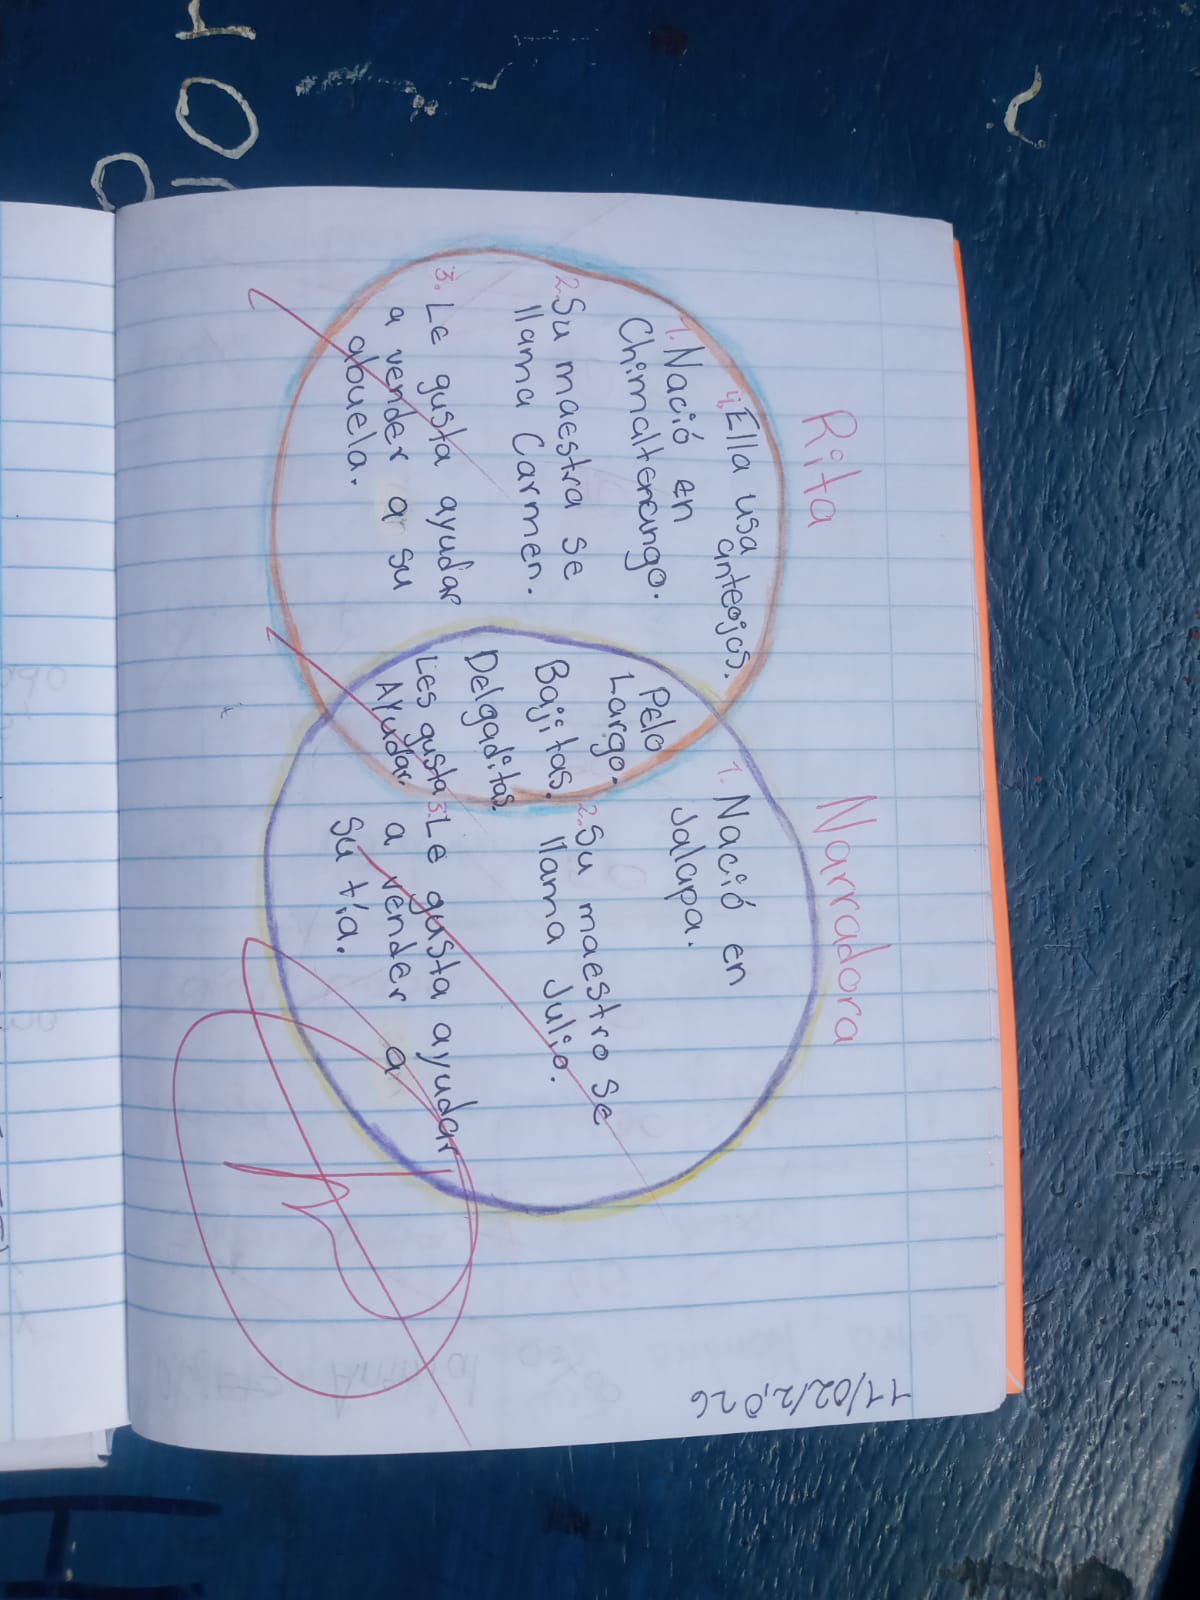 Rita
4. Ella usa
anteojos.
1. Nació en
Chimaltenango.
2. Su maestra se
llama Carmen.
3. Le gusta ayudar
a vender a su
abuela.
Pelo
Largo.
Bajitas.
Delgaditas.
Les gusta
Ayudar.
Narradora
1. Nació en
Jalapa.
2. Su maestro se
llama Julio.
3. Le gusta ayudar
a vender a
su tía.
11/02/2,026